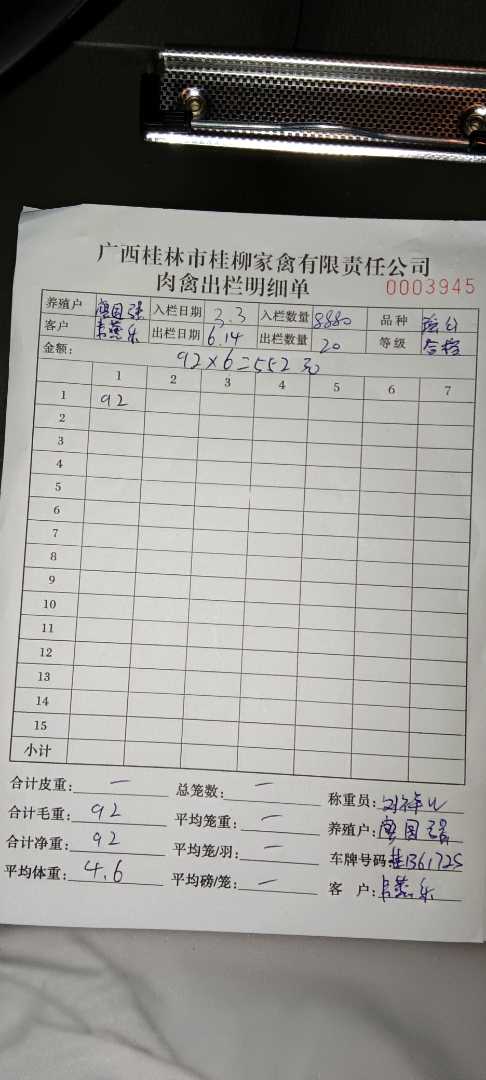 广西桂林市桂柳家禽有限责任公司
肉禽出栏明细单 0003945
养殖户 入栏日期 3.3 入栏数量 8880 品种
客户 出栏日期 6.14 出栏数量 20 等级 合格
金额: 92×6=552元
1 2 3 4 5 6 7
1 92
2
3
4
5
6
7
8
9
10
11
12
13
14
15
小计
合计皮重: — 总笼数: — 称重员:
合计毛重: 92 平均笼重: — 养殖户:
合计净重: 92 平均笼/羽: — 车牌号码:
平均体重: 4.6 平均磅/笼: — 客 户: